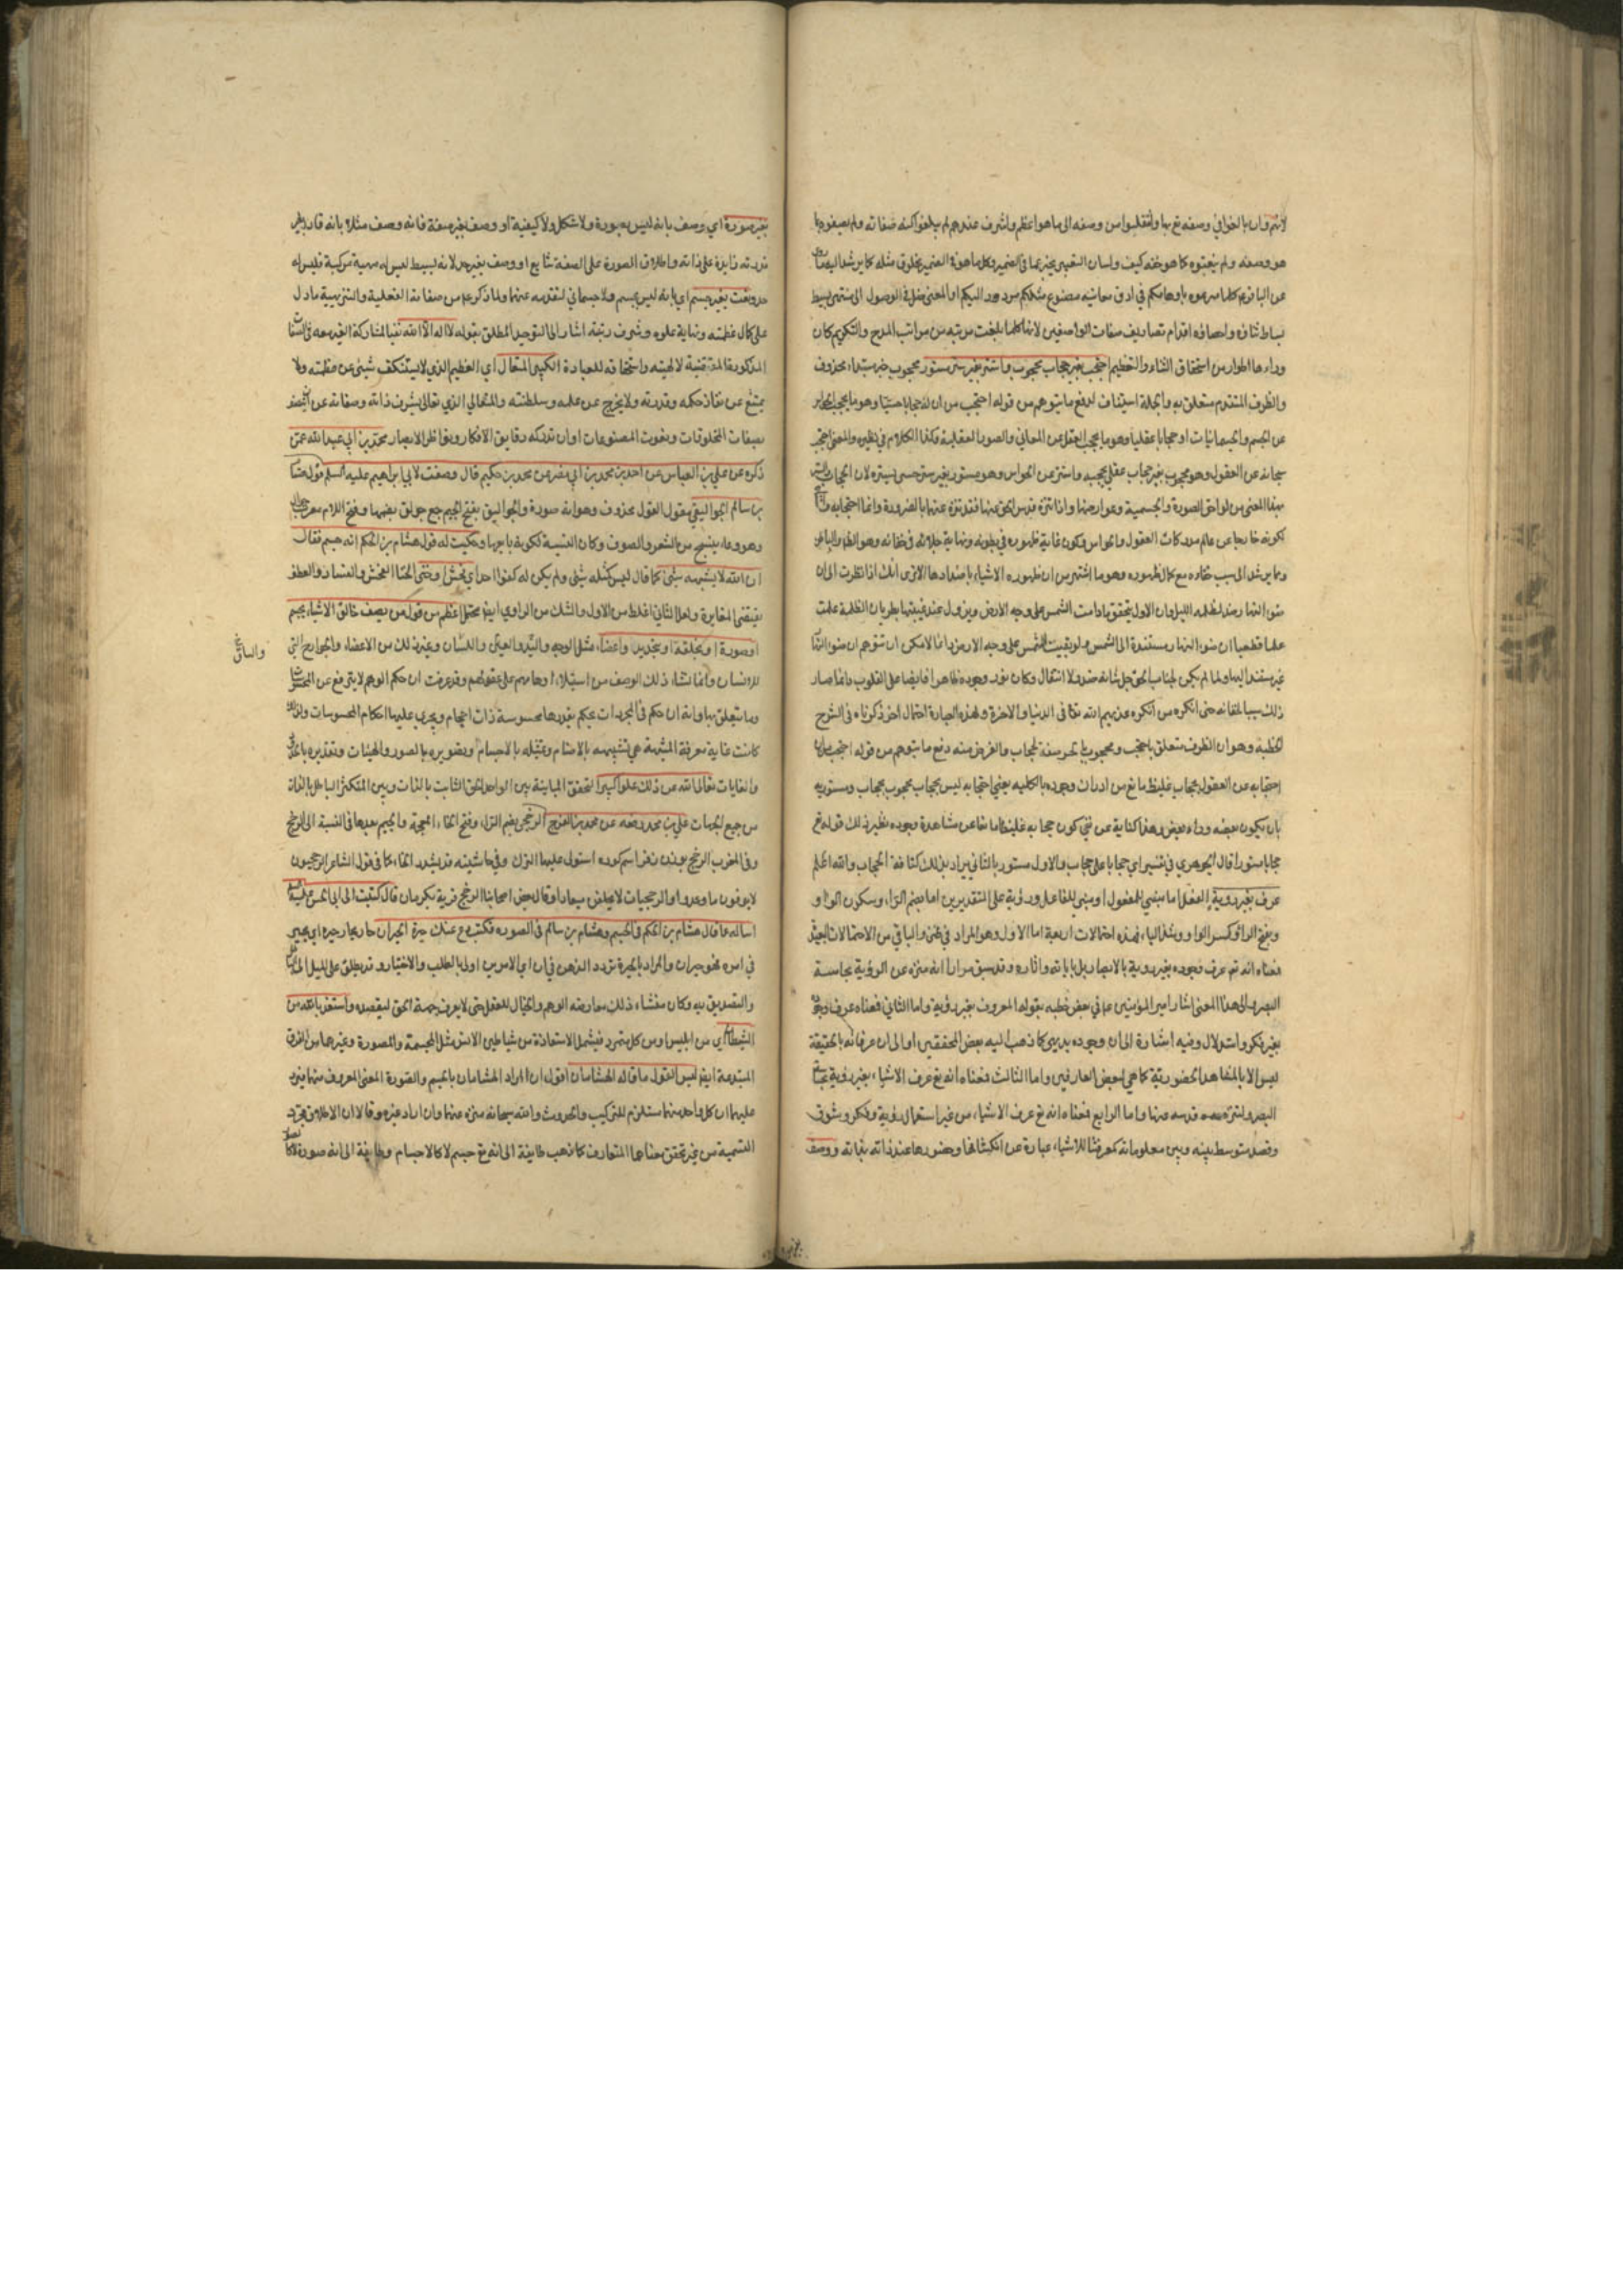 لانهم وان بالغوا في وصفه تع بها وانتقلوا من وصفه الى ما هو اعظم واشرف عندهم لم يبلغوا كنه صفاته ولم يصفوه بما
هو وصفه ولم ينعتوه كما هو حقه كيف ولسان التعبير يخبر عما في الضمير وكل ما هو في الضمير مخلوق مثله كما يرشد اليه
عن الباقر ع كلما ميزتموه باوهامكم في ادق معانيه مصنوع مثلكم مردود اليكم او المعنى ضل في الوصول الى منتهى بسيط
بساط ثنائه واحصائه اقدام تصاريف صفات الواصفين لانها كلما بلغت مرتبه من مراتب المدح والتكريم كان
وراءها اطوار من استحقاق الثناء والتعظيم احتجب بغير حجاب محجوب واستتر بغير ستر مستور محجوب خبر مبتداء محذوف
والظرف المتقدم متعلق به والجملة استيناف لدفع ما يتوهم من قوله احتجب من ان له حجابا حسيا وهو ما يحجب
عن الجسم والجسمانيات او حجابا عقليا وهو ما يحجب العقل عن المعاني والصور العقلية وكذا الكلام في نظيره والمعنى احتجب
سبحانه عن العقول وهو محجوب بغير حجاب عقلي يحجبه واستتر عن الحواس وهو مستور بغير ستر حسي يستره لان الحجاب والستر
بهذا المعنى من لواحق الصورة والجسمية وعوارضها واذا تنزه قدس الحق عنها فقد تنزه عنهما بالضرورة وانما احتجابه
لكونه خارجا عن عالم مدركات العقول والحواس وكون غاية ظهوره في بطونه ونهاية جلائه في خفائه وهو الظاهر والباطن
ومما يرشد الى سبب خفائه مع كمال ظهوره وهو ما اشتهر من ان ظهور الاشياء باضدادها الا ترى انك اذا نظرت الى ان
ضوء النهار ضد لظلمه الليل وان الاول يتحقق مادامت الشمس على وجه الارض ويزول عند غيبتها بطريان الظلمة علمت
علما قطعيا ان ضوء النهار مستندة الى الشمس ولو بقيت الشمس على وجه الارض دائما لامكن ان يتوهم ان ضوء النهار
غير مستند اليها ولما لم يكن لجناب الحق جل شانه ضد ولا انتقال وكان نور وجوده ظاهرا فايضا على القلوب دائما صار
ذلك سببا لخفائه حتى انكره من انكره عذبهم الله تعا في الدنيا والاخرة ولهذه العبارة احتمال اخر ذكرناه في الشرح
الخطبة وهو ان الظرف متعلق باحتجب ومحجوب بالجر صفة لحجاب والغرض منه دفع ما يتوهم من قوله احتجب
احتجابه عن العقول بحجاب غليظ مانع من ادراك وجوده بالكليه يعني احتجابه ليس بحجاب محجوب بحجاب ومستوريه
بان يكون بعضه وراء بعض وهذا كناية عن نفي كون حجابه غليظا مانعا عن مشاهدة وجوده نظير ذلك قوله تع
حجابا مستورا قال الجوهري في تفسير اي حجابا على حجاب والاول مستور بالثاني يراد بذلك كثافة الحجاب والله اعلم
عرف بغير روية الفعل اما مبني للمفعول او مبني للفاعل ورؤية على التقديرين اما بضم الراء وسكون الواو
وبفتح الراء وكسر الواو وشد الياء فهذه احتمالات اربعة اما الاول وهو المراد في المتن والباقي من الاحتمالات البعيدة
فمعناه انه تع عرف وجوده بغير روية بالابصار بل باياته واثاره وقد سبق مرارا انه منزه عن الرؤية بحاسة
البصر والى هذا المعنى اشار امير المؤمنين ع في بعض خطبه بقوله المعروف بغير رؤية واما الثاني فمعناه عرف وجوده
بغير فكر واستدلال وفيه اشارة الى ان وجوده بديهي كما ذهب اليه بعض المحققين او الى ان عرفانه بالحقيقة
ليس الا بالمشاهدة الحضورية كما هي لبعض العارفين واما الثالث فمعناه انه تع عرف الاشياء بغير رؤية بحاسة
البصر لتنزه قدسه عنها واما الرابع فمعناه انه تع عرف الاشياء من غير استعمال روية وفكر وشوق
وقصد متوسط بينه وبين معلوماته كمعرفتنا للاشياء عبارة عن انكشافها وحضورها عند ذاته بذاته ووصف
بغير صورة اي وصف بانه ليس بصورة ولا شكل ولا كيفية او وصف بغير صفة فانه وصف مثلا بانه قادر بغير
قدرته زايدة على ذاته واطلاق الصورة على الصفة شايع او وصف بغير حد لانه بسيط ليس له مهية مركبة فليس له
حد ونعت بغير جسم اي بانه ليس بجسم ولا جسماني لتقدسه عنهما ولما ذكر ع من صفاته الفعلية والتنزيهية ما دل
على كمال عظمته ونهاية علوه وشرف رتبة اشار الى التوحيد المطلق بقوله لا اله الا الله نفيا لمشاركة الغير معه في الصفات
المذكورة المقتضية لالهيته واستحقاقه للعبادة الكبير المتعال اي العظيم الذي لا يستنكف شيئ عن عظمته ولا
يمتنع عن نفاذ حكمه وقدرته ولا يخرج عن علمه وسلطنته والمتعالي الذي تعالى بشرف ذاته وصفاته عن
بصفات المخلوقات ونعوت المصنوعات او ان تدركه دقايق الافكار ونواظر الابصار محمد بن ابي عبد الله عمن
ذكره عن علي بن العباس عن احمد بن محمد بن ابي نصر عن محمد بن حكيم قال وصفت لابي ابراهيم عليه السلم قول هشام
بن سالم الجواليقي مقول القول محذوف وهو انه صورة والجواليق بفتح الجيم جمع جولق بضمها وفتح اللام معرب جوال
وهو وعاء ينسج من الشعر والصوف وكان النسبة لكونه بايعها وحكيت له قول هشام بن الحكم انه جسم فقال
ان الله لا يشبهه شئ كما قال ليس كمثله شئ ولم يكن له كفوا احد اي فحش او خنى الخنا الفحش والفساد والعطف
يقتضي المغايرة ولعل الثاني اغلظ من الاول والشك من الراوي ايضا محتمل اعظم من قول من يصف خالق الاشياء بجسم
او صورة او بخلقة او بتحديد واعضاء مثل الوجه واليد والعين واللسان وغير ذلك من الاعضاء والجوارح التي
للانسان وانما نشاء ذلك الوصف من استيلاء اوهامهم على عقولهم وقد عرفت ان حكم الوهم لا يترفع عن المحسوسات
وما يتعلق بها وانه ان حكم في المجردات يحكم بقدرها محسوسة ذات احجام ويجري عليها احكام المحسوسات ولذلك
كانت غاية معرفة المشبهة هي تشبيهه بالاصنام وتمثيله بالاجسام وتصويره بالصور والهيئات وتقديره بالحدود
والغايات تعالى الله عن ذلك علوا كبيرا لتحقق المباينة بين الواحد الحق الثابت بالذات وبين المتكثر الباطل بالذات
من جميع الجهات علي بن محمد رفعه عن محمد بن الفرج الرخجي بضم الراء وفتح الخاء المعجمة والجيم بعدها في النسبة الى الرخج
وفي المغرب الرخج بوزن نفر اسم كوره استولى عليها الترك وفي حاشيته قد يشدد الخاء كما في قول الشاعر الرخجيون
لا يوفون ما وعدوا والرخجيات لا يخلفن ميعادا وقال بعض اصحابنا الرخج قرية بكرمان قال كتبت الى ابي الحسن عليه السلم
اساله عما قال هشام بن الحكم في الجسم وهشام بن سالم في الصوره فكتب ع دع عنك حيرة الحيران حار يحار حيرة اي تحير
في امره فهو حيران والمراد بالحيرة تردد الذهن في ان اي الامرين اولى بالطلب والاختيار وقد يطلق على الميل الى الباطل
والتصديق به وكان منشاء ذلك معارضه الوهم والخيال للعقل حتى لا يعرف جهة الحق ليقصده واستعذ بالله من
الشيطان اي من ابليس او من كل متمرد فيشمل الاستعاذة من شياطين الانس مثل المجسمة والمصورة وغيرها من الفرق
المبتدعة ايضا ليس القول ما قاله الهشامان اقول ان المراد الهشامان بالجسم والصورة المعنى المعروف منهما فيرد
عليهما ان كل واحد منهما مستلزم للتركيب والحدوث والله سبحانه منزه عنهما وان اراد غيره وقالا ان الاطلاق مجرد
التسمية من غير تحقق معناهما المتعارف كما ذهب طايفة الى انه تع جسم لا كالاجسام وطايفة الى انه صورة لا